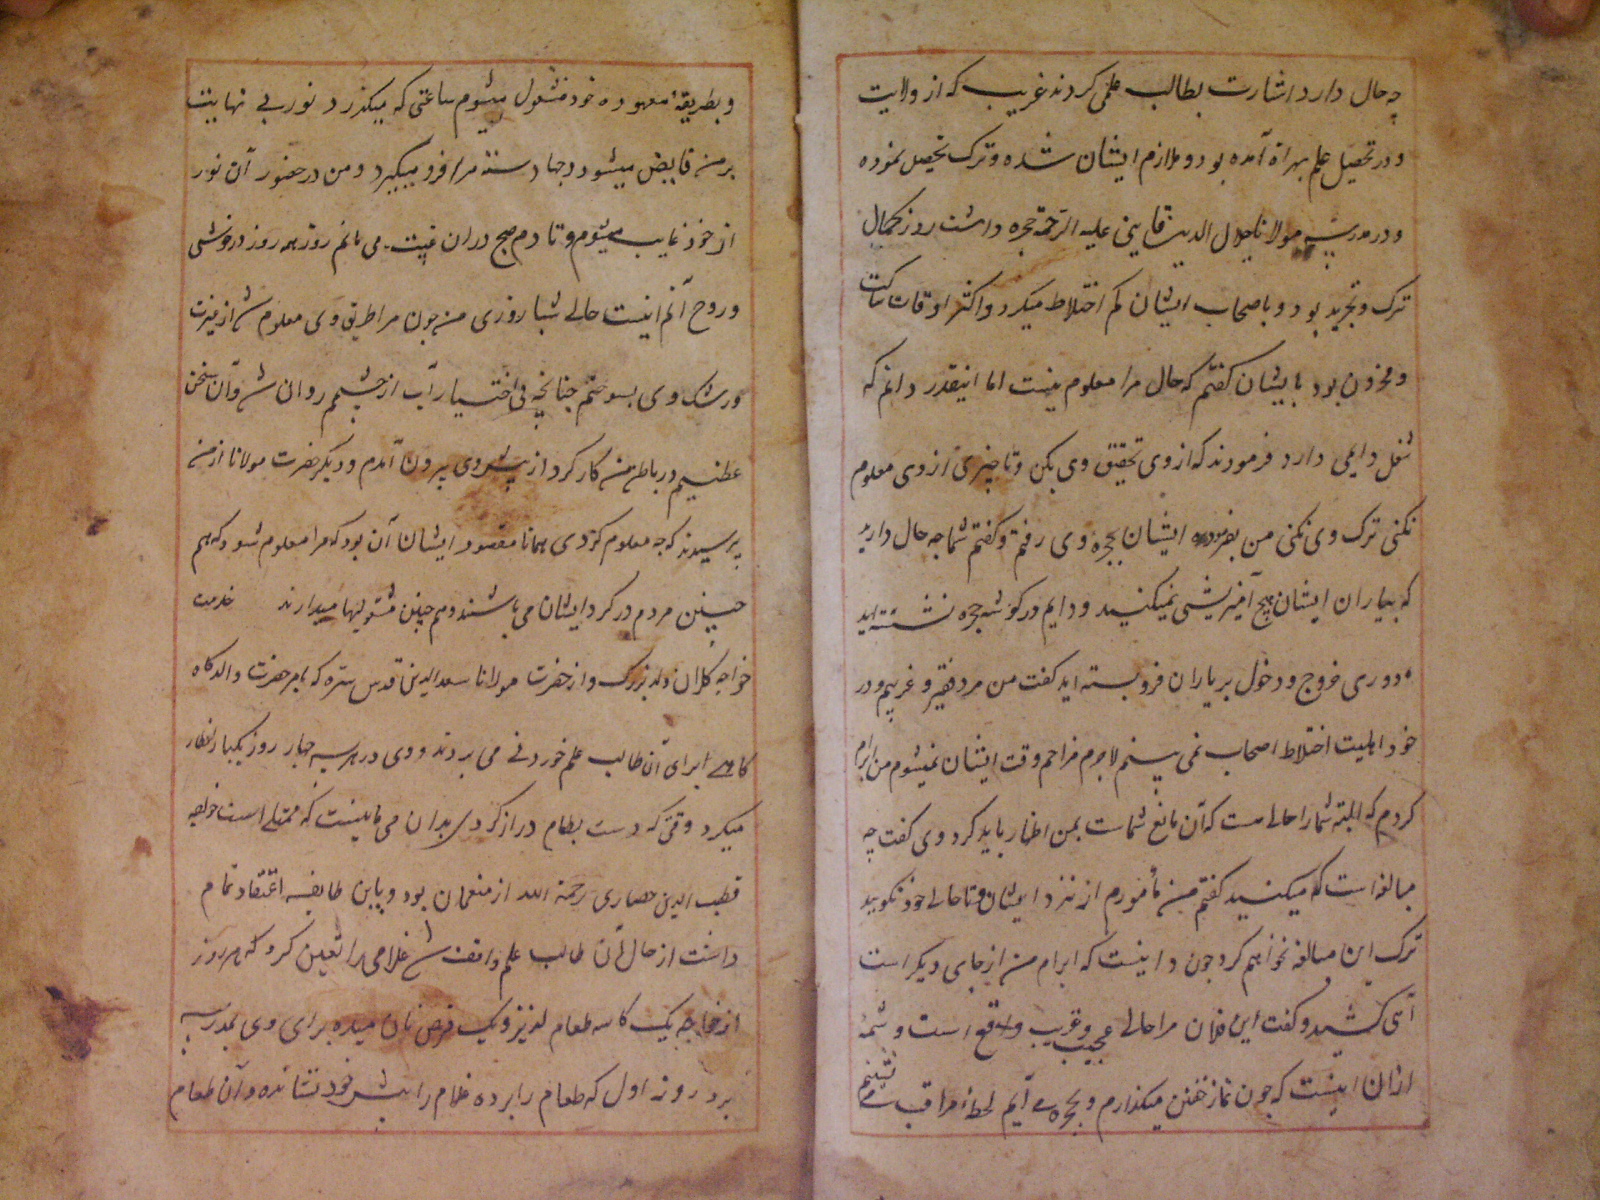 چه حال دارد اشارت بطالب علمی کردند غریب که از ولایت
و در تحصیل علم بهراة آمده بود و ملازم ایشان شده و ترک تحصیل نموده
و در مدرسه مولانا جلال الدین قاینی علیه الرحمة حجره داشت روز بکمال
ترک و تجرید بود و با صحاب ایشان کم اختلاط میکرد و اکثر اوقات ساکت
و محزون بود بایشان گفتم که حال مرا معلوم نیست اما اینقدر دانم که
شغل دایمی دارد فرمودند که از وی تحقیق وی بکن و تا چیزی از وی معلوم
نکنی ترک وی نکنی من بفرموده ایشان بحجره وی رفتم و گفتم شما چه حال دارید
که بیاران ایشان هیچ آمیزشی نمیکنید و دایم در گوشه حجره نشسته اید
و دری خروج و دخول بر یاران فرو بسته اید گفت من مرد فقیر و غریبم و در
خود اهلیت اختلاط اصحاب نمی بینم لاجرم مزاحم وقت ایشان نمیشوم من ابرام
کردم که البته شما را حالی هست که آن مانع شماست بمن اظهار باید کرد وی گفت چه
مبالغه است که میکنید گفتم من مأمورم از نزد ایشان و تا حال خود نگویید
ترک این مبالغه نخواهم کرد چون دانست که ابرام من از جای دیگر است
آهی کشید و گفت این فلان مرا حالی عجیب و غریب واقع است و شمهٔ
از آن اینست که چون نماز خفتن میگذارم و بحجره می آیم لحظه مراقب می نشینم
و بطریقهٔ معهوده خود مشغول میشوم ساعتی که میگذرد نور بی نهایت
بر من فایض میشود و جهات سته مرا فرو میگیرد و من در حضور آن نور
از خود غایب میشوم و تا دم صبح در آن غیبت می مانم روز همه روز در خوشی
و روح آنم اینست حال شبا روزی من چون مرا طریق وی معلوم شد از غیرت
و رشک وی بسوختم چنانچه بی اختیار آب از چشمم روان شد و آن سخن
عظیم در باطن من کار کرد از پیش وی بیرون آمدم و دیگر حضرت مولانا از من
پرسیدند که چه معلوم کردی همانا مقصود ایشان آن بود که مرا معلوم شود که هم
چنین مردم در گرد ایشان می باشند و هم چنین مشغولیها میدارند خدمت
خواجه کلان ولد بزرگ و از حضرت مولانا سعد الدین قدس سره که بامر حضرت والد گاه
گاهی برای آن طالب علم خوردنی می بردند و وی در هر سه چهار روز یکبار افطار
میکرد وقتی که دست بطعام دراز کردی بدان می مانست که ممتلی است خواجه
قطب الدین حصاری رحمة الله از منعمان بود و باین طایفه اعتقاد تمام
داشت از حال آن طالب علم واقف شد غلامی را تعین کرد که هر روز
از خواجه یک کاسه طعام لذیذ و یک قرص نان میده برای وی بمدرسه
برد روز اول که طعام را برده غلام را پیش خود نشانده و آن طعام